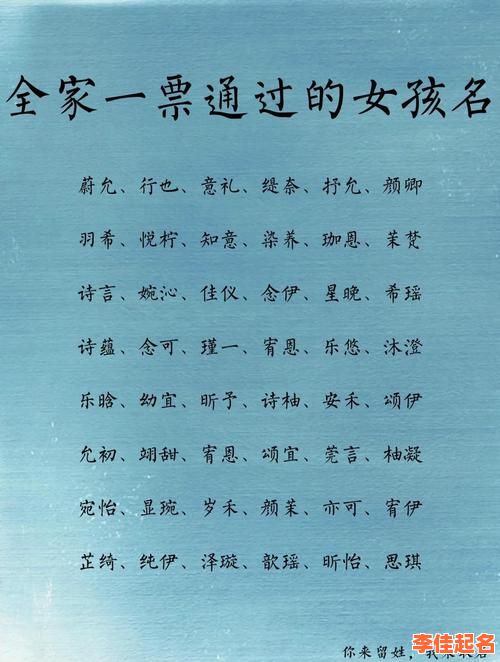 全家一票通过的女孩名
蔚允、行也、意礼、缇奈、抒允、颜卿
羽希、悦柠、知意、染养、珈恩、茉梵
诗言、婉沁、佳仪、念伊、星晚、希瑶
诗蕴、念可、瑾一、宥恩、乐悠、沐澄
乐晗、幼宜、昕予、诗柚、安禾、颂伊
允初、翊甜、宥恩、颂宜、莞言、柚凝
宛怡、显琬、岁禾、颜茉、亦可、宥伊
芷绮、纯伊、泽璇、歆瑶、昕怡、思琪
你来留姓，我来取名
李佳起名